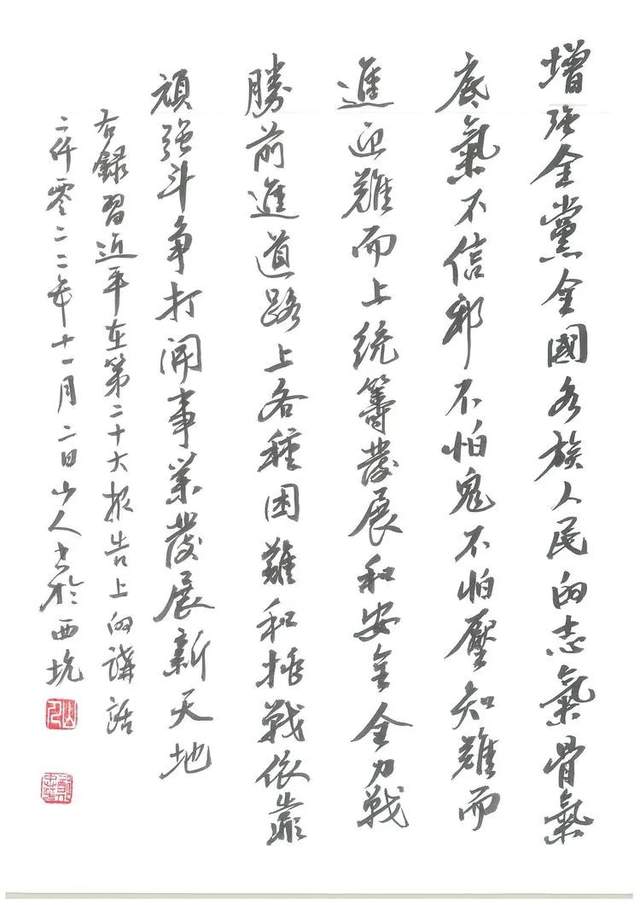 增强全黨全國各族人民的志氣骨氣
底氣不信邪不怕鬼不怕壓知難而
進迎難而上統籌發展和安全全力戰
勝前進道路上各種困難和挑戰依靠
頑强斗争打開事業發展新天地
右錄習近平在第二十大报告上的講話
二仟零二二年十一月二日山人书於西坑
山人